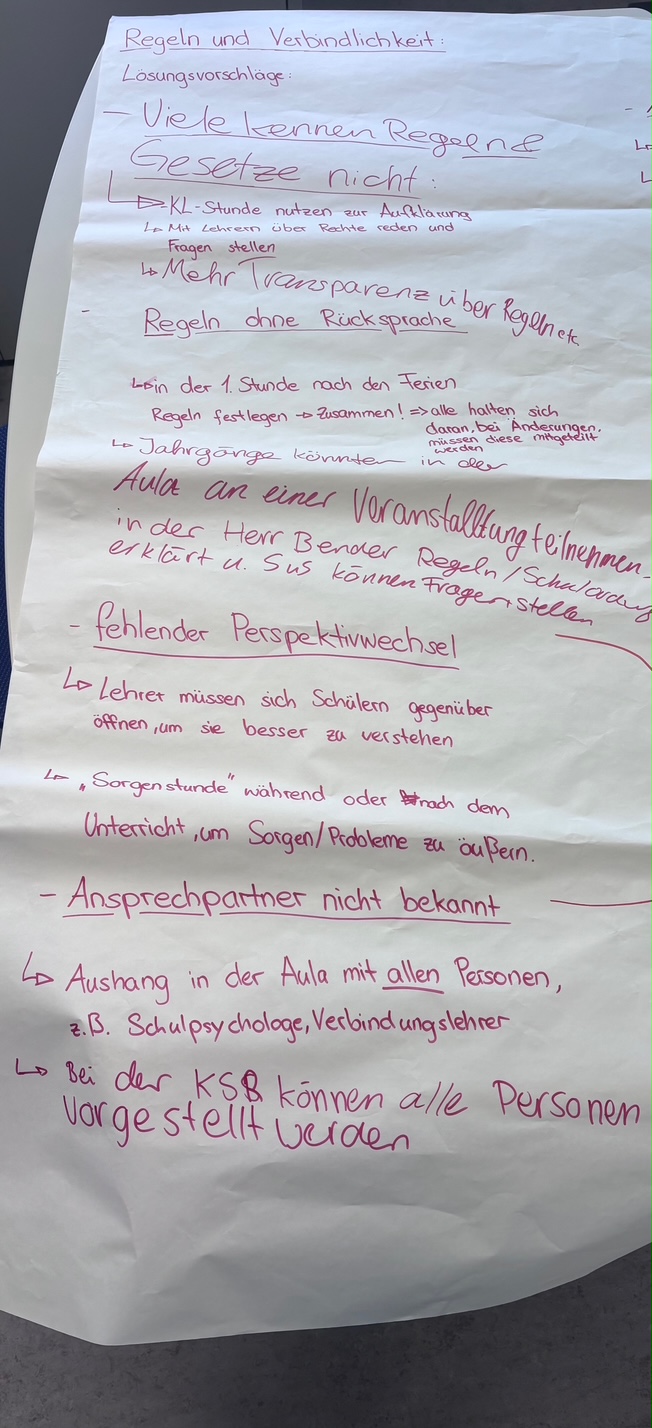 Regeln und Verbindlichkeit:
Lösungsvorschläge:
- Viele kennen Regeln &
Gesetze nicht:
↳ KL-Stunde nutzen zur Aufklärung
↳ Mit Lehrern über Rechte reden und
Fragen stellen
↳ Mehr Transparenz über Regeln etc.
- Regeln ohne Rücksprache
↳ in der 1. Stunde nach den Ferien
Regeln festlegen → Zusammen! => alle halten sich
daran, bei Änderungen,
müssen diese mitgeteilt
werden
↳ Jahrgänge könnten in der
Aula an einer Veranstalltung teilnehmen
in der Herr Bender Regeln/Schulordnung
erklärt u. SuS können Fragen stellen
- fehlender Perspektivwechsel
↳ Lehrer müssen sich Schülern gegenüber
öffnen, um sie besser zu verstehen
↳ „Sorgenstunde" während oder nach dem
Unterricht, um Sorgen/Probleme zu äußern.
- Ansprechpartner nicht bekannt
↳ Aushang in der Aula mit allen Personen,
z.B. Schulpsychologe, Verbindungslehrer
↳ Bei der KSB können alle Personen
vorgestellt werden